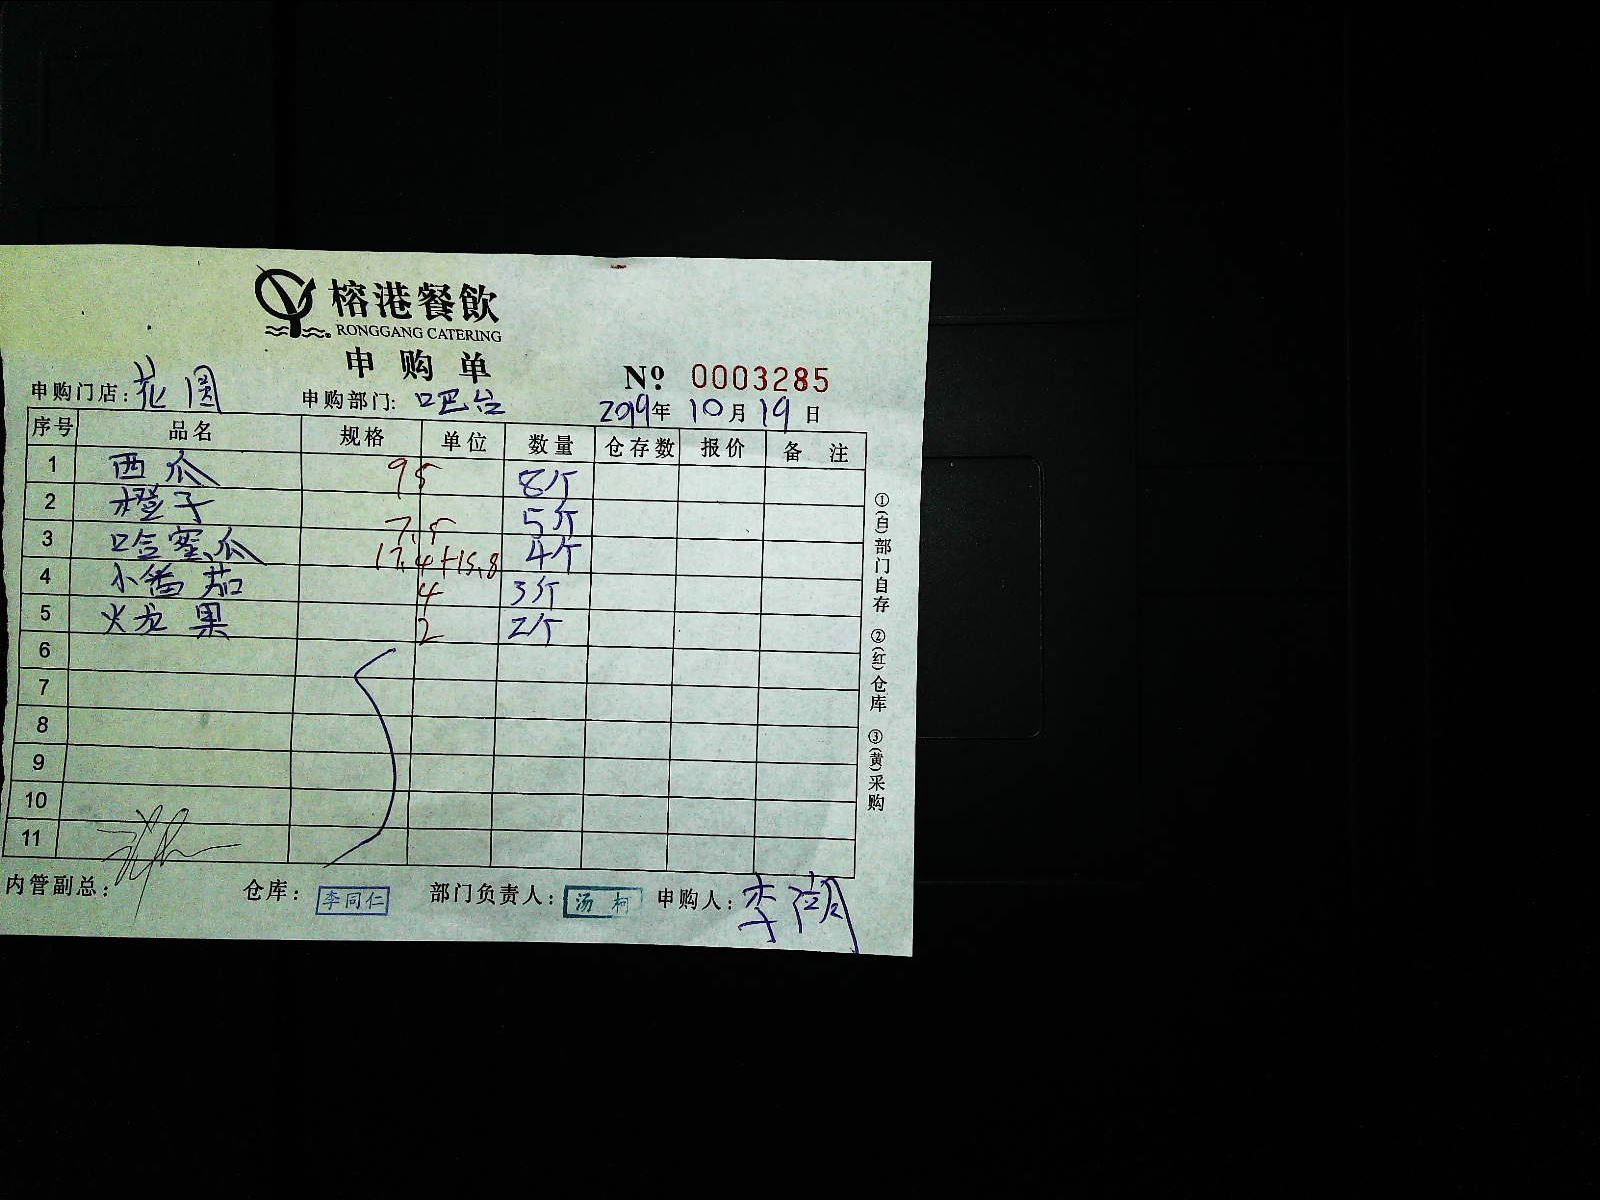 榕港餐飲
RONGGANG CATERING
申购单
№ 0003285
申购门店: 花圆 申购部门: 吧台 2019年10月19日
序号 品名 规格 单位 数量 仓存数 报价 备注
1 西瓜 95 8个
2 橙子 7.5 5斤
3 哈蜜瓜 17.4+15.8 4个
4 小番茄 4 3斤
5 火龙果 2 2个
6
7
8
9
10
11
内管副总: 仓库: 李同仁 部门负责人: 汤柯 申购人: 李
①(白)部门自存 ②(红)仓库 ③(黄)采购